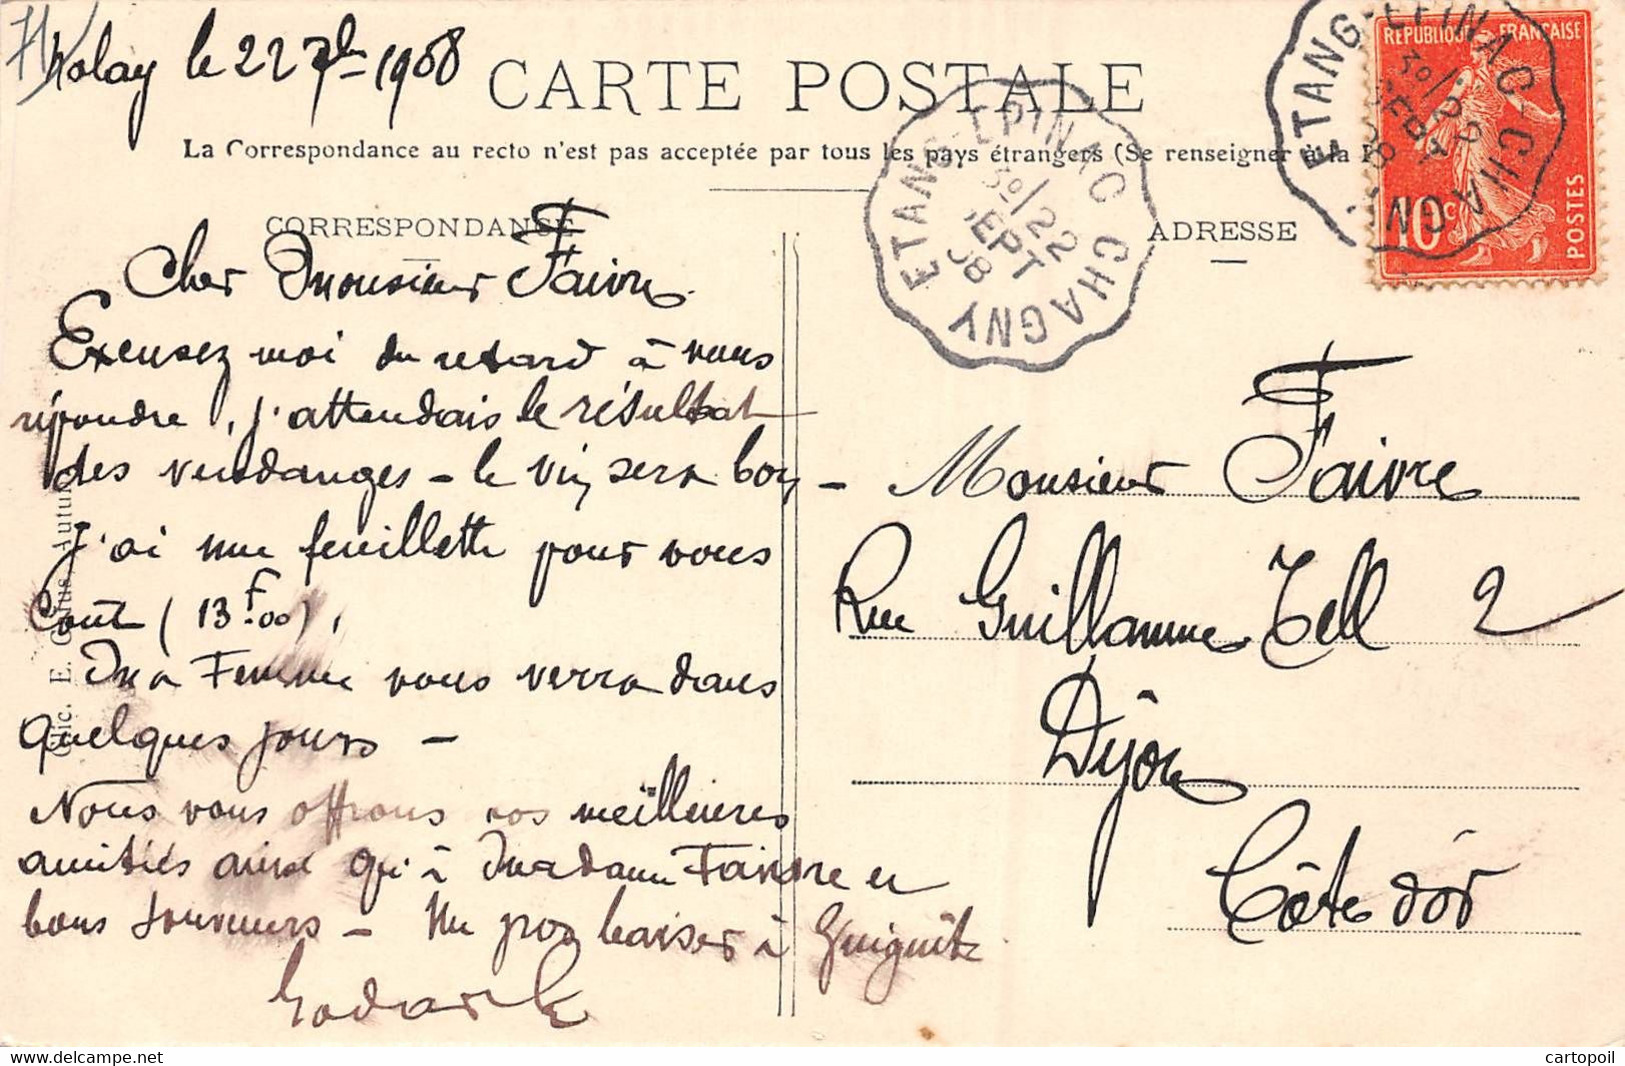 Nolay le 22 7bre 1908
CARTE POSTALE
La Correspondance au recto n'est pas acceptée par tous les pays étrangers (Se renseigner à la
CORRESPONDANCE
ADRESSE
Cher Monsieur Faivre
Excusez moi du retard à vous
répondre, j'attendais le résultat
des vendanges - le vin sera bon -
J'ai une feuillette pour vous
Coût (13F.00),
Ma Femme vous verra dans
quelques jours -
Nous vous offrons nos meilleures
amitiés ainsi qu'à Madame Faivre et
bons souvenirs - Un gros baiser à
Monsieur Faivre
Rue Guillaume Tell 2
Dijon
Côte d'or
ETANG-EPINAC CHAGNY
3o/22
SEPT
08
ETANG-EPINAC-CHAGNY
3o/22
SEPT
08
REPUBLIQUE FRANÇAISE
10c
POSTES
Clic. E. Autun
cartopoil